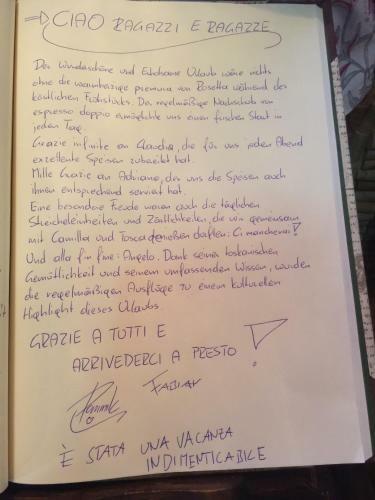 ⇒ CIAO RAGAZZI E RAGAZZE
Der wunderschöne und Erholsame Urlaub wäre nichts
ohne die warmherzige premura von Rosetta während des
köstlichen Frühstücks. Der regelmäßige Nachschub von
espresso doppio ermöglichte uns einen frischen Start in
jeden Tag.
Grazie infinite an Claudia, die für uns jeden Abend
exzellente Speisen zubereitet hat.
Mille Grazie an Adriano, der uns die Speisen auch
ihnen entsprechend serviert hat.
Eine besondere Freude waren auch die täglichen
Streicheleinheiten und Zärtlichkeiten, die wir gemeinsam
mit Camilla und Tosca genießen durften: Ci mancherai!
Und alla fin fine: Angelo. Dank seiner toskanischen
Gemütlichkeit und seinem umfassenden Wissen, wurden
die regelmäßigen Ausflüge zu einem kulturellen
Highlight dieses Urlaubs.
GRAZIE A TUTTI E
ARRIVEDERCI A PRESTO!
FABIAN
È STATA UNA VACANZA
INDIMENTICABILE